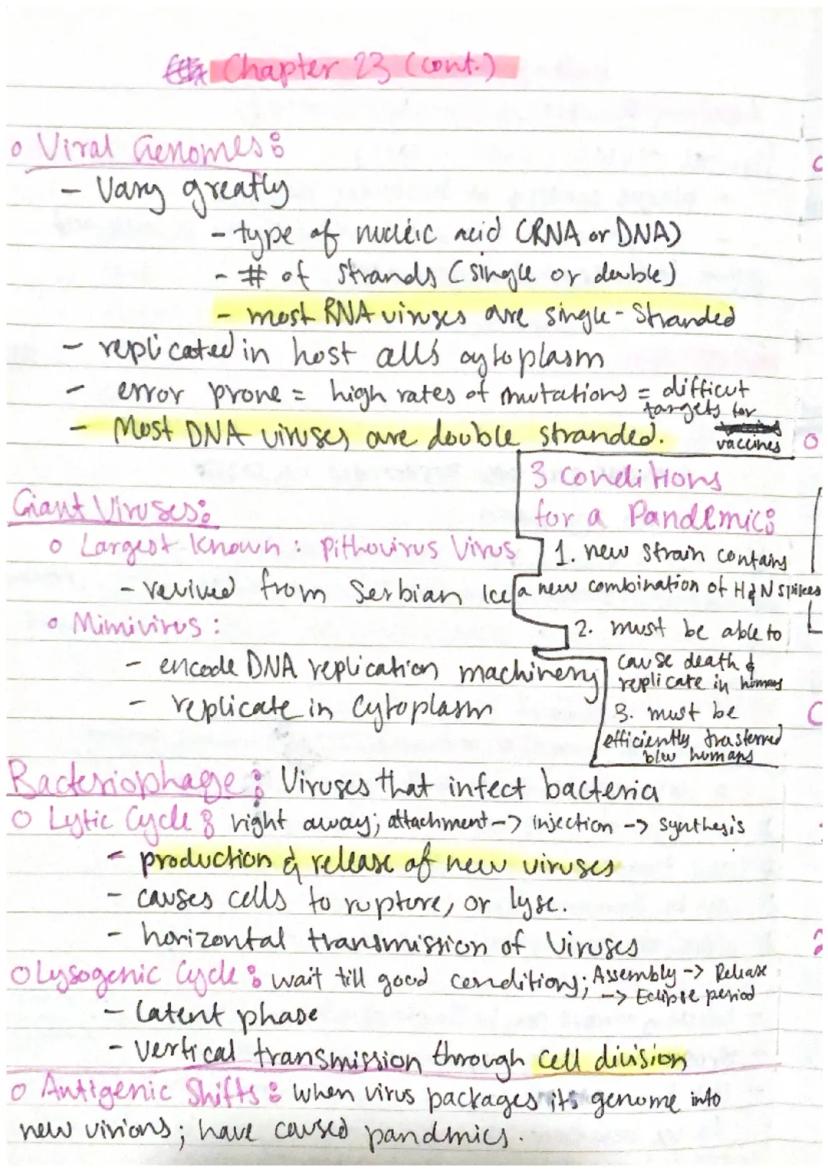 Chapter 23 (cont.)
o Viral Genomes:
- Vary greatly
- type of nucleic acid (RNA or DNA)
- # of strands (single or double)
- most RNA viruses are single-stranded
- replicated in host cells cytoplasm
- error prone = high rates of mutations = difficut
targets for
vaccines
- Most DNA viruses are double stranded.
3 conditions
for a Pandemic:
1. new strain contains
a new combination of H&N spikes
2. must be able to
cause death &
replicate in humans
3. must be
efficiently trasferred
b/w humans
Giant Viruses:
o Largest Known: Pithovirus Virus
- revived from Serbian Ice
o Mimivirus:
- encode DNA replication machinery
- replicate in Cytoplasm
Bacteriophage: Viruses that infect bacteria
o Lytic Cycle: right away; attachment -> injection -> synthesis
- production & release of new viruses
- causes cells to rupture, or lyse.
- horizontal transmission of Viruses
o Lysogenic Cycle: wait till good conditions; Assembly -> Release
-> Eclipse period
- Latent phase
- vertical transmission through cell division
o Antigenic Shifts: when virus packages its genome into
new virions; have caused pandmics.